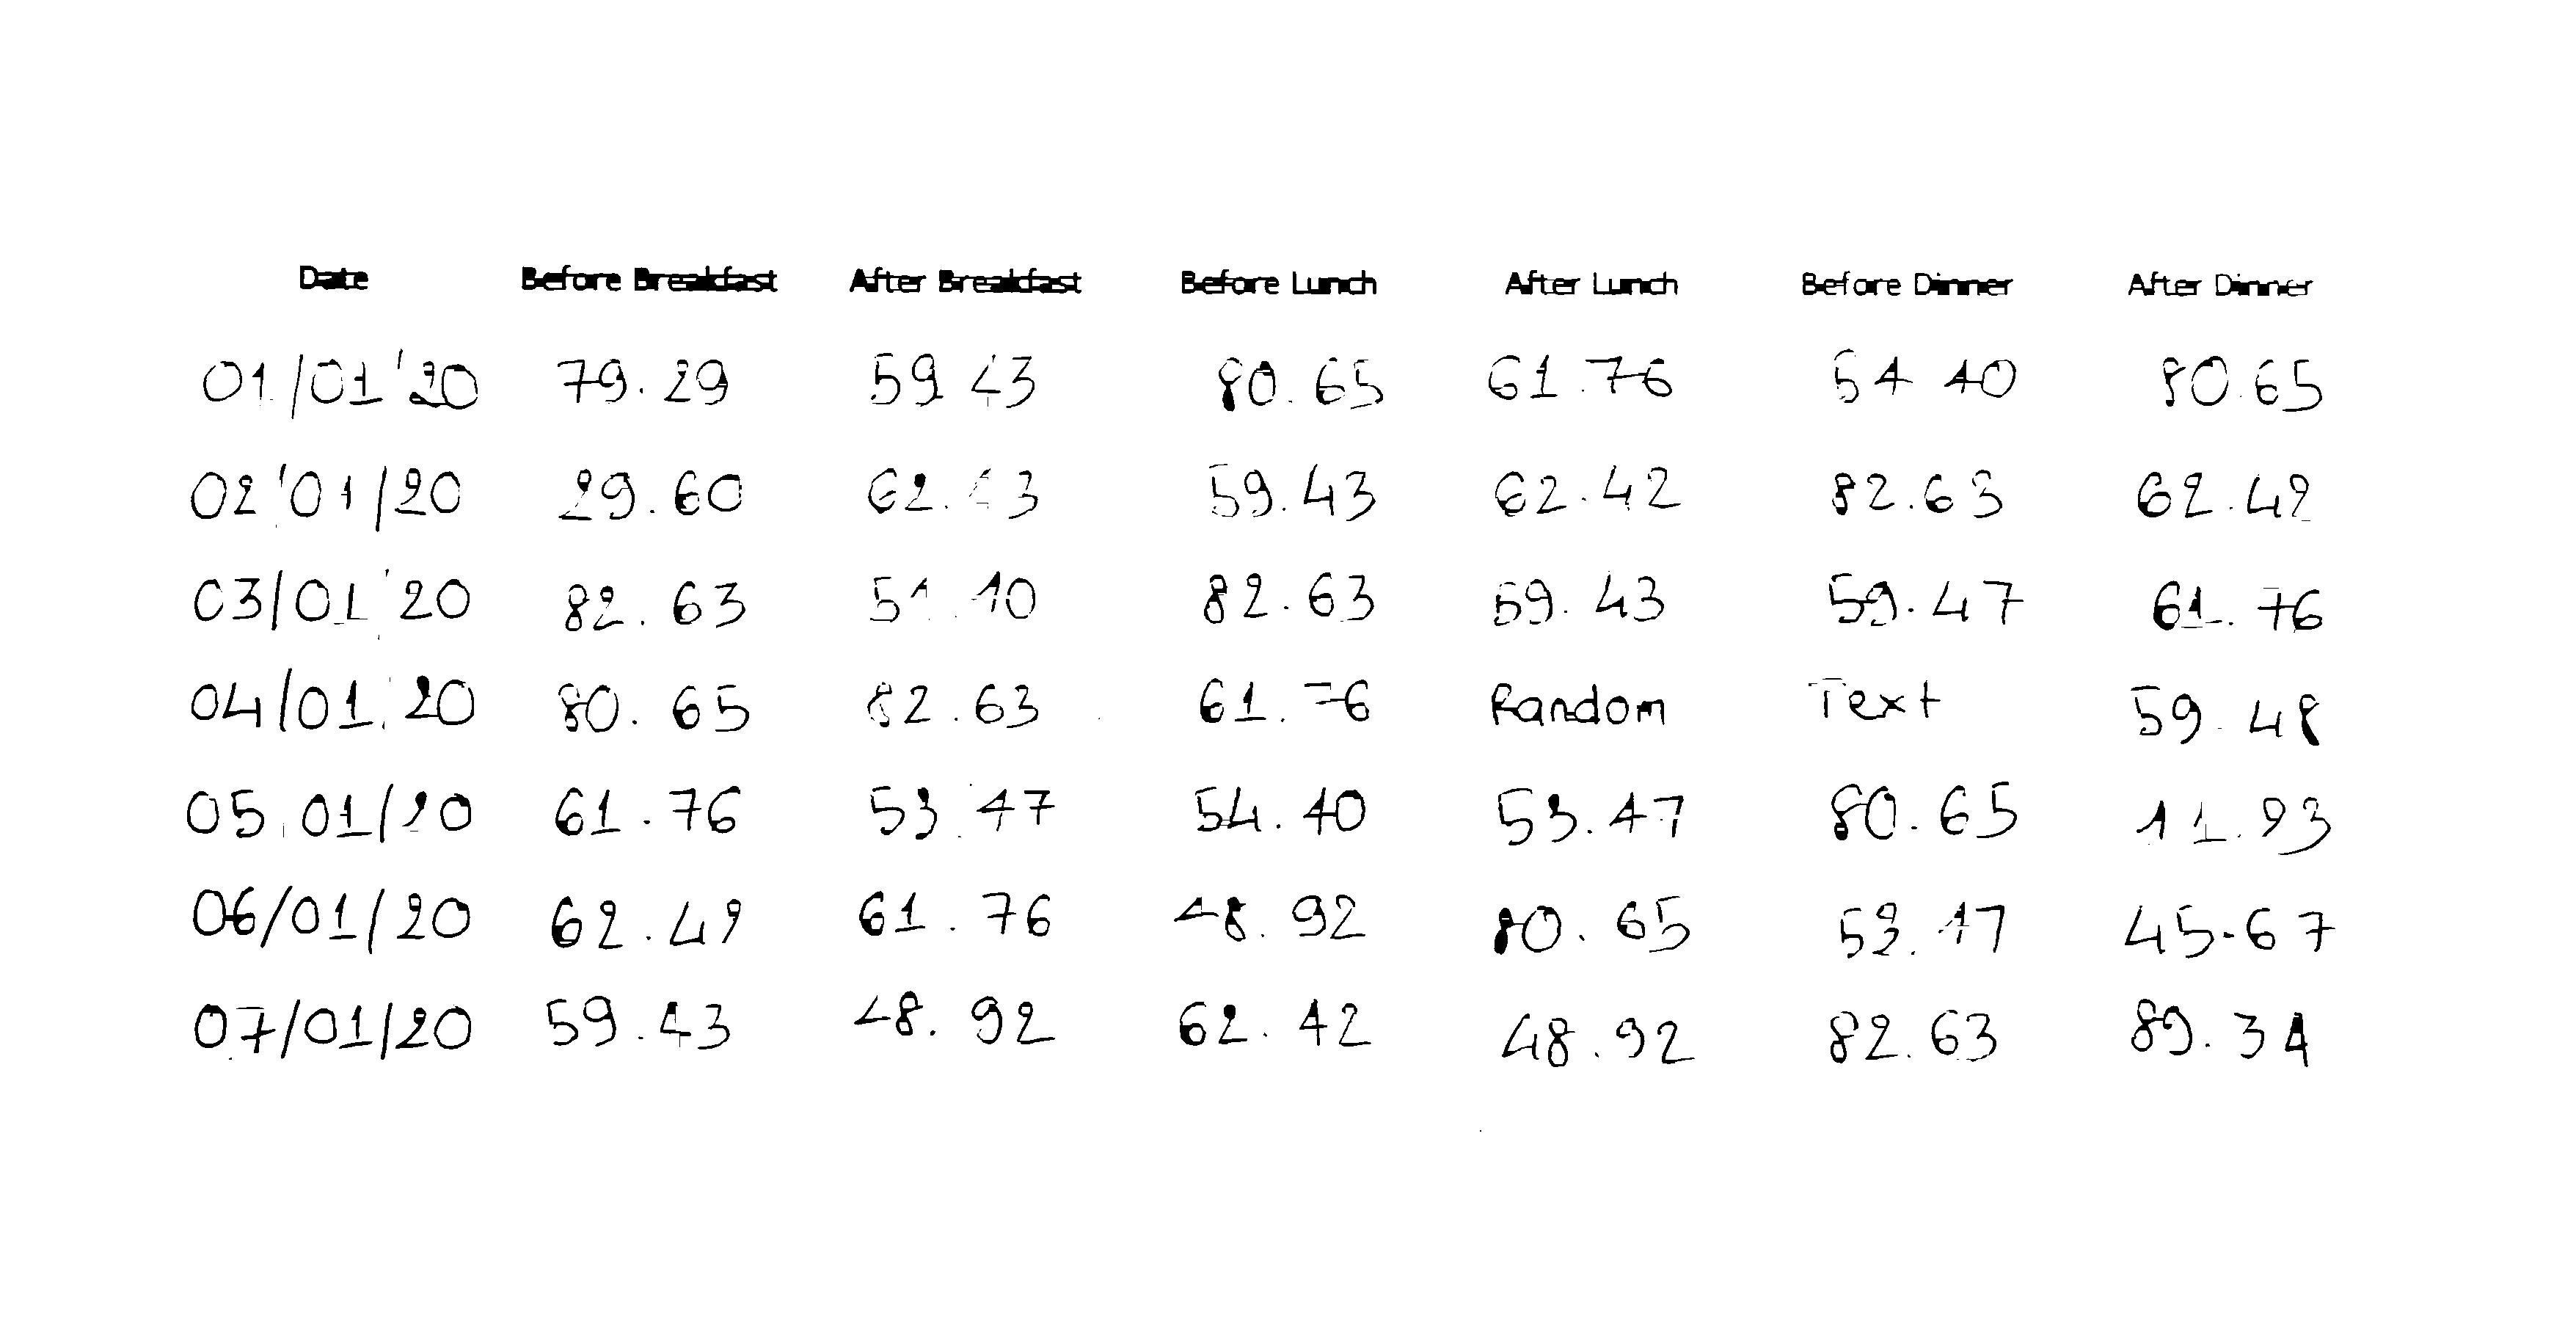 Date Before Breakfast After Breakfast Before Lunch After Lunch Before Dinner After Dinner
01/01/20 79.29 59.43 80.65 61.76 54.40 80.65
02/01/20 29.60 62.43 59.43 62.42 82.63 62.42
03/01/20 82.63 82.63 59.43 59.47 61.76
04/01/20 80.65 82.63 61.76 Random Text 59.48
05/01/20 61.76 53.47 54.40 53.47 80.65 11.93
06/01/20 62.42 61.76 48.92 80.65 53.47 45.67
07/01/20 59.43 48.92 62.42 48.92 82.63 89.34